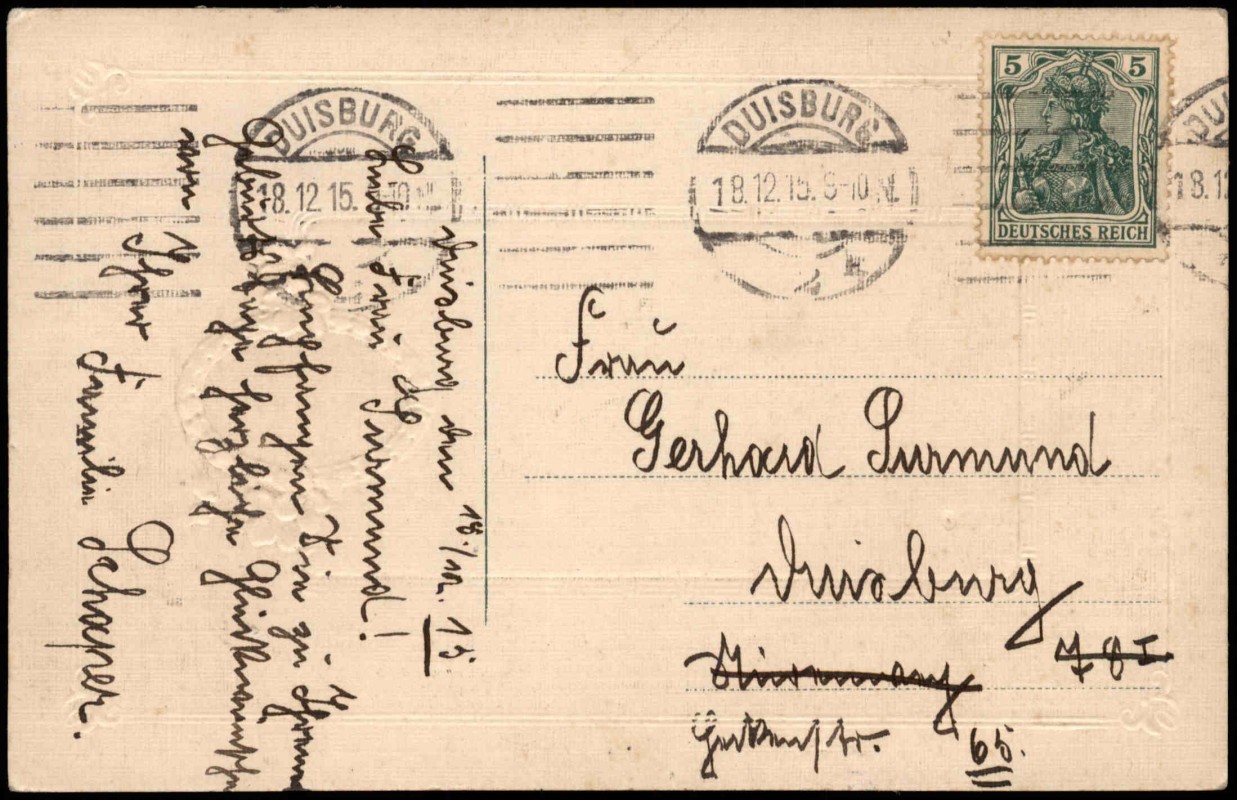 DUISBURG
18.12.15. 9-10 N.
DUISBURG
18.12.15. 9-10 N.
5 5
DEUTSCHES REICH
DU
18.12
Duisburg den 18./12. 15.
Liebe Frau Surmund!
Empfangen Sie zu Ihrem
Geburtstage herzliche Glückwünsche
von Ihrer
Familie Schaper.
Frau
Gerhard Surmund
Duisburg
78 I
Heckenstr. 65.